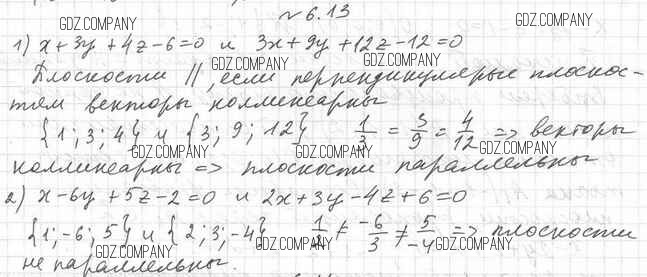 №6.13
GDZ.COMPANY GDZ.COMPANY
1) x+3y+4z-6=0 и 3x+9y+12z-12=0
GDZ.COMPANY GDZ.COMPANY
Плоскости ||, если перпендикулярые плоскос-
тям векторы коллинеарны
GDZ.COMPANY GDZ.COMPANY
{1; 3; 4} и {3; 9; 12} 1/3 = 3/9 = 4/12 => векторы
GDZ.COMPANY GDZ.COMPANY
коллинеарны => плоскости параллельны
GDZ.COMPANY GDZ.COMPANY
2) x-6y+5z-2=0 и 2x+3y-4z+6=0
{1; -6; 5} и {2; 3; -4} 1/2 ≠ -6/3 ≠ 5/-4 => плоскости
GDZ.COMPANY GDZ.COMPANY
не параллельны.